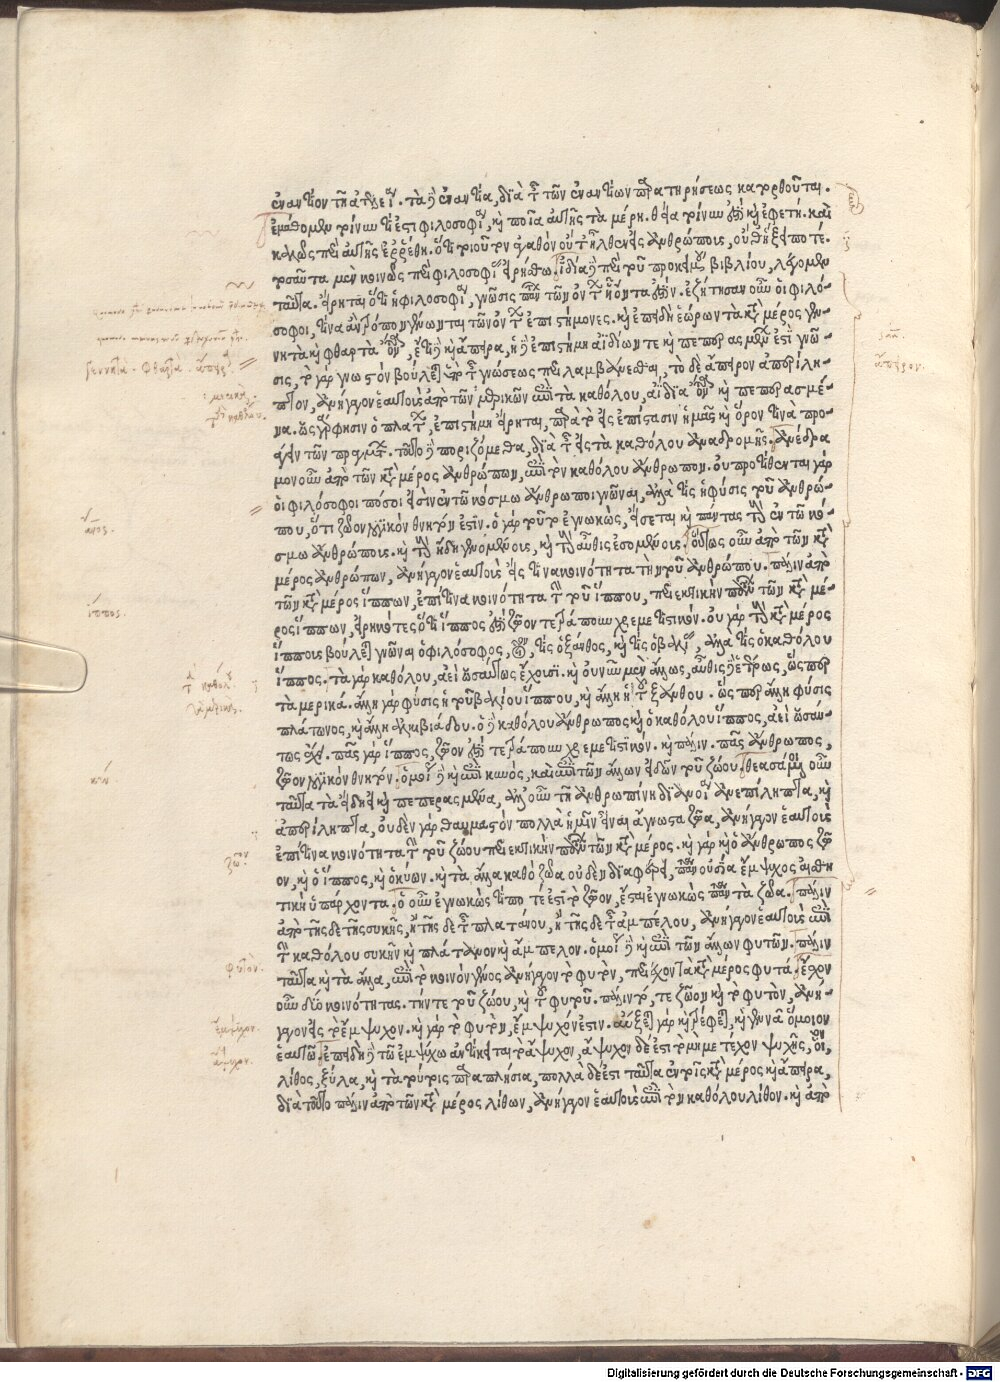 ἐναντίον τῇ ἀτελείᾳ. τὰ δὲ ἐναντία, διὰ τῆς τῶν ἐναντίων παρατηρήσεως κατορθοῦται.
ἐμάθομεν τοίνυν τί ἐστι φιλοσοφία, καὶ ποῖα αὐτῆς τὰ μέρη. καὶ
καλῶς περὶ αὐτῆς ἐρρέθη. ὅτι τοιοῦτον ἀγαθὸν οὔτ' ἦλθεν εἰς ἀνθρώπους, οὔθ' ἥξει ποτέ.
τοσαῦτα μὲν κοινῶς περὶ φιλοσοφίας εἰρήσθω. ἰδίᾳ δὲ περὶ τοῦ προκειμένου βιβλίου, λέγομεν
ταῦτα. εἴρηται ὅτι ἡ φιλοσοφία, γνῶσις πάντων τῶν ὄντων ᾗ ὄντα ἐστίν. ἐζήτησαν οὖν οἱ φιλό-
σοφοι, τίνα ἂν τρόπον γένωνται τῶν ὄντων ἐπιστήμονες. καὶ ἐπειδὴ ἑώρων τὰ κατὰ μέρος γεν-
νητὰ καὶ φθαρτὰ ὄντα, ἔτι δὲ καὶ ἄπειρα, ἡ δὲ ἐπιστήμη ἀϊδίων τε καὶ πεπερασμένων ἐστὶ γνῶ-
σις, τὸ γὰρ γνωστὸν βούλεται ὑπὸ τῆς γνώσεως περιλαμβάνεσθαι, τὸ δὲ ἄπειρον ἀπερίλη-
πτον, ἀνήγαγον ἑαυτοὺς ἀπὸ τῶν μερικῶν ἐπὶ τὰ καθόλου, ἀΐδια ὄντα καὶ πεπερασμέ-
να. ὡς γάρ φησιν ὁ πλάτων, ἐπιστήμη εἴρηται, παρὰ τὸ εἰς ἐπίστασιν ἡμᾶς καὶ ὅρον τινὰ προ-
άγειν τῶν πραγμάτων. τοῦτο δὲ ποριζόμεθα, διὰ τῆς εἰς τὰ καθόλου ἀναδρομῆς. ἀνέδρα
μον οὖν ἀπὸ τῶν κατὰ μέρος ἀνθρώπων, ἐπὶ τὸν καθόλου ἄνθρωπον. οὐ προτίθενται γὰρ
οἱ φιλόσοφοι πόσοι εἰσὶν ἐν τῷ κόσμῳ ἄνθρωποι γνῶναι, ἀλλὰ τίς ἡ φύσις τοῦ ἀνθρώ-
που, ὅτι ζῷον λογικὸν θνητόν ἐστιν. ὁ γὰρ τοῦτο ἐγνωκὼς, εἴσεται καὶ πάντας τοὺς ἐν τῷ κό-
σμῳ ἀνθρώπους. καὶ τοὺς ἤδη γενομένους, καὶ τοὺς αὖθις ἐσομένους. οὕτως οὖν ἀπὸ τῶν κατὰ
μέρος ἀνθρώπων, ἀνήγαγον ἑαυτοὺς εἰς τινα κοινότητα τὴν τοῦ ἀνθρώπου. πάλιν ἀπὸ
τῶν κατὰ μέρος ἵππων, ἐπί τινα κοινότητα τὴν τοῦ ἵππου, περιεκτικὴν πάντων τῶν κατὰ μέ-
ρος ἵππων, εἰρηκότες ὅτι ἵππος ἐστὶ ζῷον τετράπουν χρεμετιστικόν. οὐ γὰρ τοὺς κατὰ μέρος
ἵππους βούλεται γνῶναι ὁ φιλόσοφος, οἷον, τίς ὁ ξάνθος, καὶ τίς ὁ βαλίος, ἀλλὰ τίς ὁ καθόλου
ἵππος. τὰ γὰρ καθόλου, ἀεὶ ὡσαύτως ἔχουσι. καὶ οὐ νῦν μὲν ἄλλως, αὖθις δὲ ἑτέρως, ὥσπερ
τὰ μερικά. ἄλλη γὰρ φύσις ἡ τοῦ βαλίου ἵππου, καὶ ἄλλη ἡ τοῦ ξάνθου. ὥσπερ ἄλλη φύσις
πλάτωνος, καὶ ἄλλη ἀλκιβιάδου. ὁ δὲ καθόλου ἄνθρωπος καὶ ὁ καθόλου ἵππος, ἀεὶ ὡσαύ-
τως ἔχει. πᾶς γὰρ ἵππος, ζῷον ἐστὶ τετράπουν χρεμετιστικόν. καὶ πάλιν. πᾶς ἄνθρωπος,
ζῷον λογικὸν θνητόν. ὁμοίως δὲ καὶ ἐπὶ κυνός, καὶ ἐπὶ τῶν ἄλλων εἰδῶν τοῦ ζῴου. θεασάμενοι οὖν
ταῦτα τὰ εἴδη εἰ καὶ πεπερασμένα, ἀλλ' οὖν τῇ ἀνθρωπίνῃ διανοίᾳ ἀνεπίληπτα, καὶ
ἀπερίληπτα, οὐδὲν γὰρ θαυμαστὸν πολλὰ ἡμῖν εἶναι ἄγνωστα ζῷα, ἀνήγαγον ἑαυτοὺς
ἐπί τινα κοινότητα τὴν τοῦ ζῴου περιεκτικὴν πάντων τῶν κατὰ μέρος. καὶ γὰρ καὶ ὁ ἄνθρωπος ζῷ
ον, καὶ ὁ ἵππος, καὶ ὁ κύων. καὶ τὰ ἄλλα καθὸ ζῷα οὐδὲν διαφέρει, πάντα οὐσία ἔμψυχος αἰσθη
τικὴ ὑπάρχοντα. ὁ οὖν ἐγνωκὼς τί ποτέ ἐστι τὸ ζῷον, ἔσται ἐγνωκὼς πάντα τὰ ζῷα. πάλιν
ἀπὸ τῆσδε τῆς συκῆς, ἢ τῆσδε τῆς πλατάνου, ἢ τῆσδε τῆς ἀμπέλου, ἀνήγαγον ἑαυτοὺς ἐπὶ
τὴν καθόλου συκῆν καὶ πλάτανον καὶ ἄμπελον. ὁμοίως δὲ καὶ ἐπὶ τῶν ἄλλων φυτῶν. πάλιν
ταῦτα καὶ τὰ ἄλλα, ἐπὶ τὸ κοινὸν γένος ἀνήγαγον τὸ φυτὸν, περιέχον τὰ κατὰ μέρος φυτά. ἔχον
οὖν δύο κοινότητας. τήν τε τοῦ ζῴου, καὶ τὴν τοῦ φυτοῦ. πάλιν τό, τε ζῷον καὶ τὸ φυτὸν, ἀνή-
γαγον εἰς τὸ ἔμψυχον. καὶ γὰρ τὸ φυτὸν, ἔμψυχόν ἐστιν. αὔξεται γὰρ καὶ τρέφεται, καὶ γεννᾷ ὅμοιον
ἑαυτῷ. ἐπειδὴ δὲ τῷ ἐμψύχῳ ἀντίκειται τὸ ἄψυχον, ἄψυχον δέ ἐστι τὸ μὴ μετέχον ψυχῆς, οἷον,
λίθος, ξύλα, καὶ τὰ τούτοις παραπλήσια, πολλὰ δέ ἐστι ταῦτα ἐν τοῖς κατὰ μέρος καὶ ἄπειρα,
διὰ τοῦτο πάλιν ἀπὸ τῶν κατὰ μέρος λίθων, ἀνήγαγον ἑαυτοὺς ἐπὶ τὸν καθόλου λίθον. καὶ ἀπὸ
ἄπειρον.
ἵππος.
φυτόν.
ἔμψυχον.
ἄψυχον.
Digitalisierung gefördert durch die Deutsche Forschungsgemeinschaft - DFG